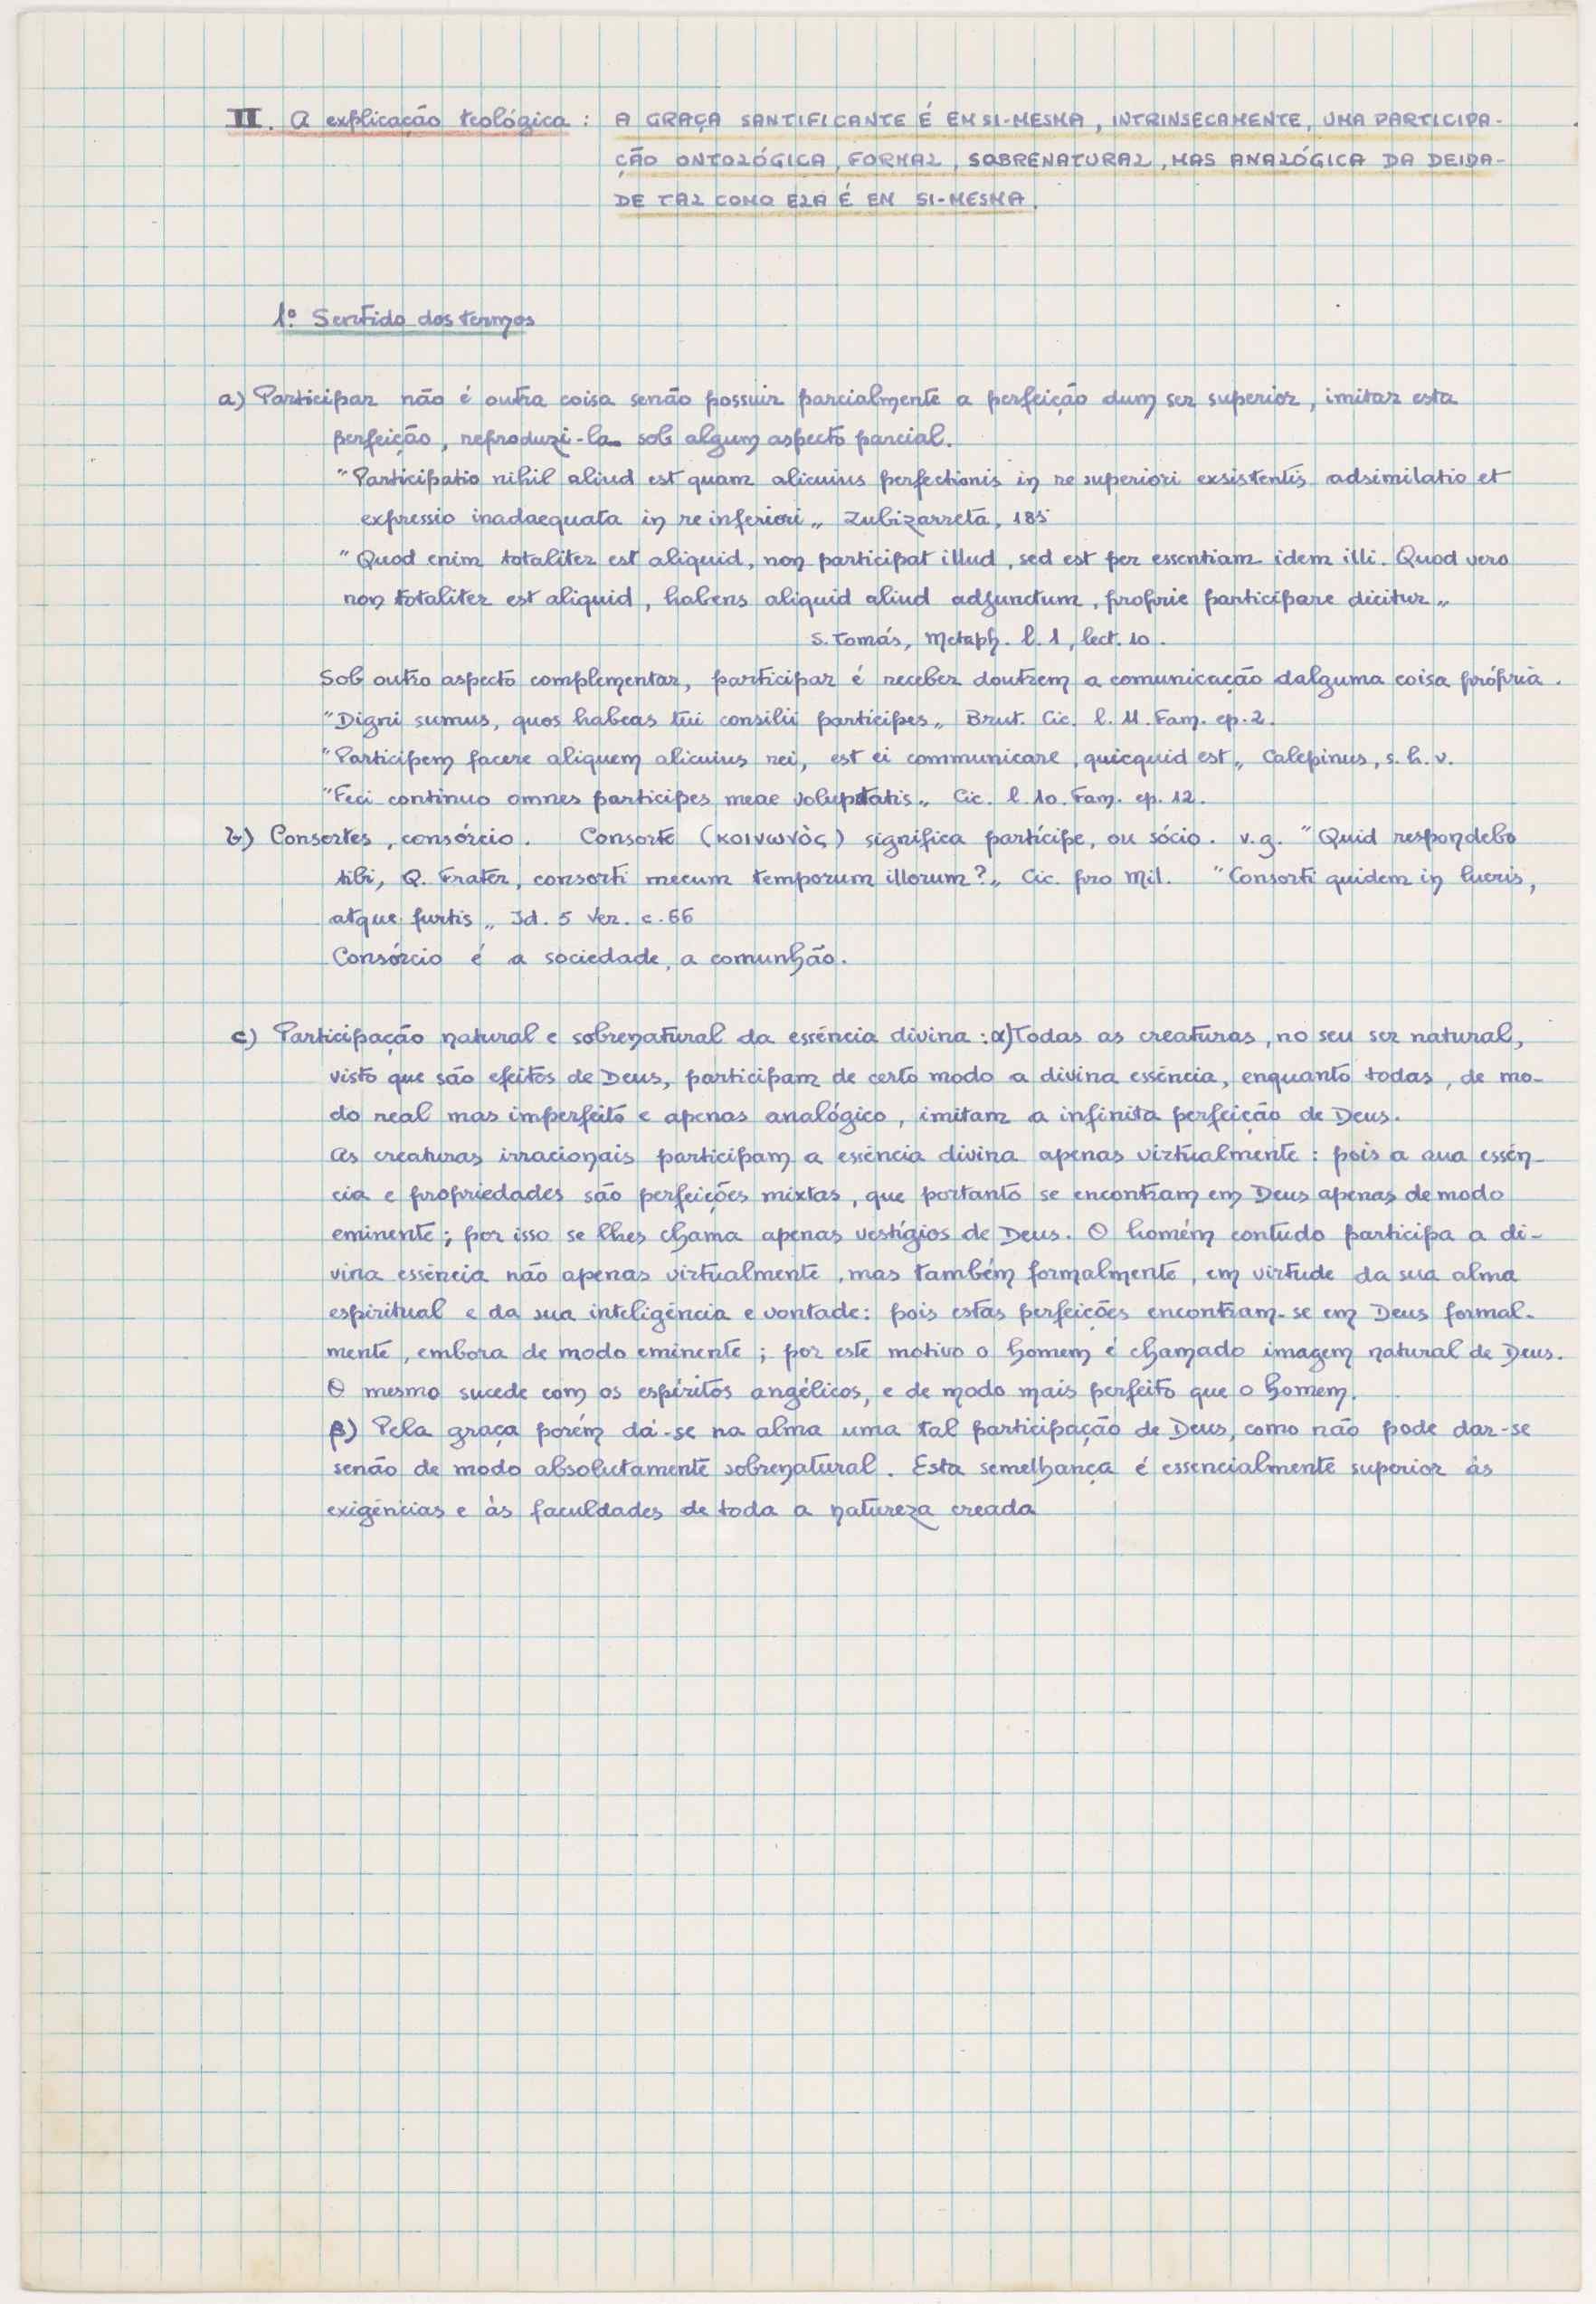 II. A explicação teológica : A GRAÇA SANTIFICANTE É EM SI-MESMA, INTRINSECAMENTE, UMA PARTICIPA-
ÇÃO ONTOLÓGICA, FORMAL, SOBRENATURAL, MAS ANALÓGICA DA DEIDA-
DE TAL COMO ELA É EM SI-MESMA.
1º Sentido dos termos
a) Participar não é outra coisa senão possuir parcialmente a perfeição dum ser superior, imitar esta
perfeição, reproduzi-la sob algum aspecto parcial.
"Participatio nihil aliud est quam alicuius perfectionis in re superiori exsistentis adsimilatio et
expressio inadaequata in re inferiori„ Zubizarreta, 185
"Quod enim totaliter est aliquid, non participat illud, sed est per essentiam idem illi. Quod vero
non totaliter est aliquid, habens aliquid aliud adjunctum, proprie participare dicitur„
S. Tomás, Metaph. l. 1, lect. 10.
Sob outro aspecto complementar, participar é receber doutrem a comunicação dalguma coisa própria.
"Digni sumus, quos habeas tui consilii partícipes„ Brut. Cic. l. 11. Fam. ep. 2.
"Participem facere aliquem alicuius rei, est ei communicare, quicquid est„ Calepinus, s. h. v.
"Feci continuo omnes participes meae voluptatis„ Cic. l. 10. Fam. ep. 12.
b) Consortes, consórcio. Consorte (κοινωνὸς) significa partícipe, ou sócio. v.g. "Quid respondebo
tibi, Q. Frater, consorti mecum temporum illorum?„ Cic. pro Mil. "Consorti quidem in lucris,
atque furtis„ Id. 5 Ver. c. 66
Consórcio é a sociedade, a comunhão.
c) Participação natural e sobrenatural da essência divina : α) Todas as creaturas, no seu ser natural,
visto que são efeitos de Deus, participam de certo modo a divina essência, enquanto todas, de mo-
do real mas imperfeito e apenas analógico, imitam a infinita perfeição de Deus.
As creaturas irracionais participam a essência divina apenas virtualmente : pois a sua essên-
cia e propriedades são perfeições mixtas, que portanto se encontram em Deus apenas de modo
eminente; por isso se lhes chama apenas vestígios de Deus. O homem contudo participa a di-
vina essência não apenas virtualmente, mas também formalmente, em virtude da sua alma
espiritual e da sua inteligência e vontade: pois estas perfeições encontram-se em Deus formal-
mente, embora de modo eminente; por este motivo o homem é chamado imagem natural de Deus.
O mesmo sucede com os espíritos angélicos, e de modo mais perfeito que o homem.
β) Pela graça porém dá-se na alma uma tal participação de Deus, como não pode dar-se
senão de modo absolutamente sobrenatural. Esta semelhança é essencialmente superior às
exigências e às faculdades de toda a natureza creada